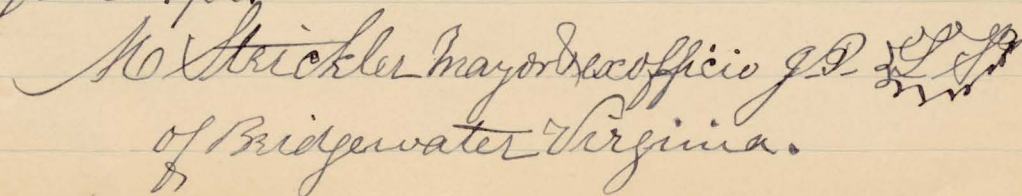 M Strickler Mayor & exofficio J.P. L S
of Bridgewater Virginia.